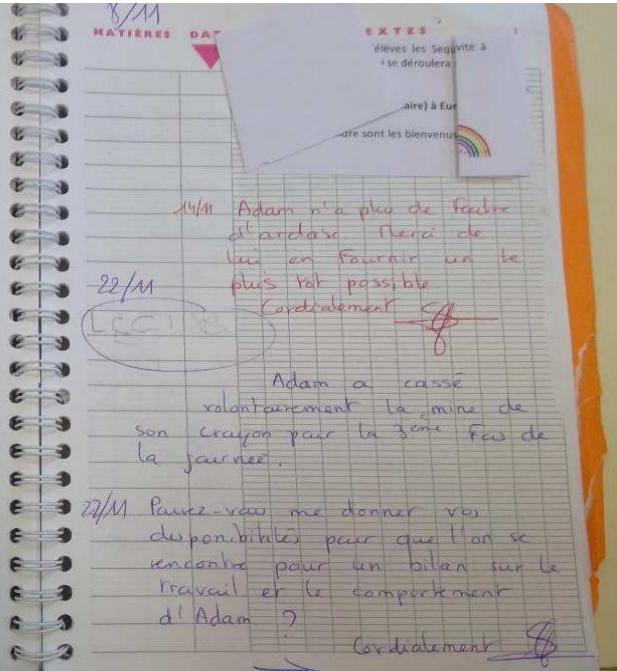 8/11
MATIÈRES DAT EXTES
élèves les Sequvite à
se déroulera
aire) à Eur
dre sont les bienvenus
14/11 Adam n'a plus de Feutre
d'ardoise. Merci de
lui en Fournir un le
plus tot possible.
22/11
Cordialement
Adam a cassé
volontairement la mine de
son crayon pour la 3ème Fois de
la journée.
27/11 Pouvez-vous me donner vos
disponibilités pour que l'on se
rencontre pour un bilan sur le
travail et le comportement
d'Adam ?
Cordialement